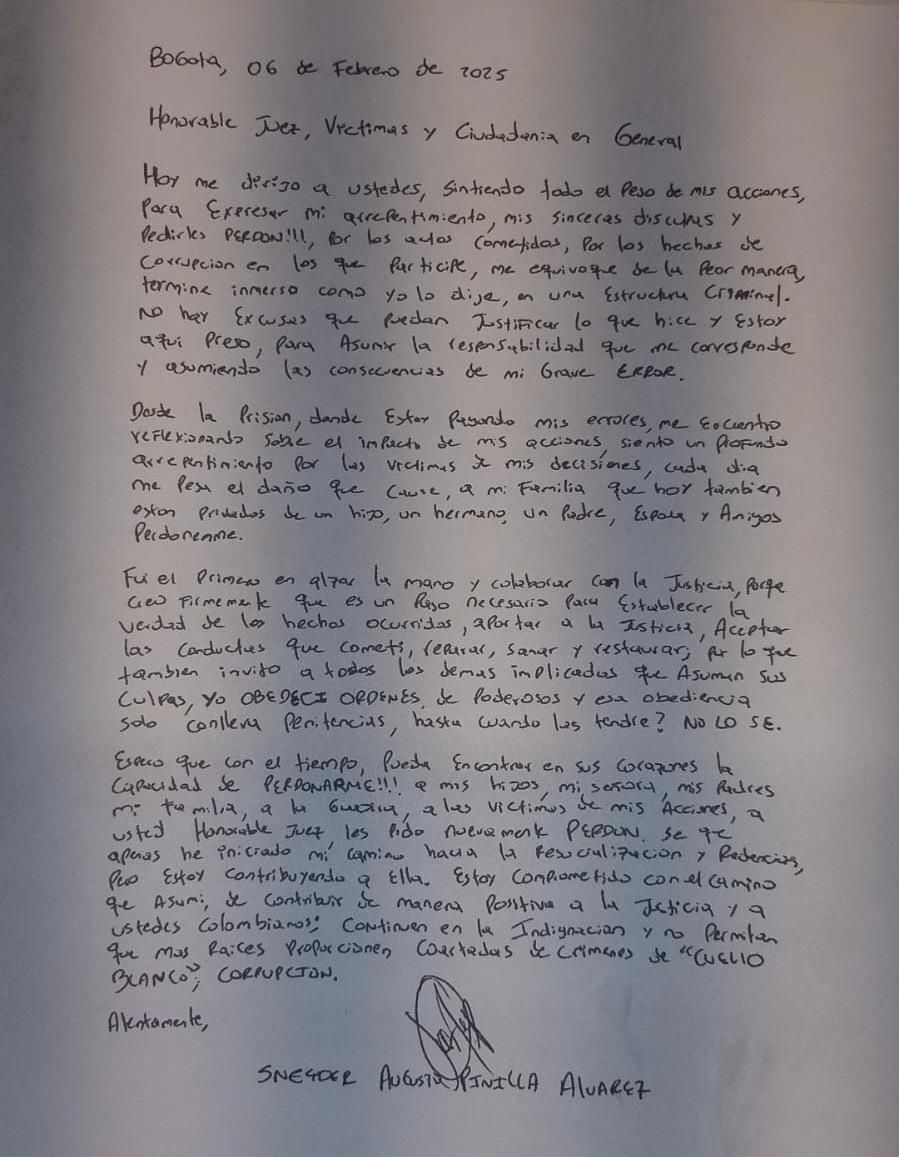 Bogota, 06 de Febrero de 2025
Honorable Juez, Victimas y Ciudadania en General
Hoy me dirijo a ustedes, sintiendo todo el Peso de mis acciones,
Para Expresar mi arrepentimiento, mis sinceras disculpas y
Pedirles PERDON!!!, Por los actos Cometidos, Por los hechos de
Corrupcion en los que Participe, me equivoque de la Peor manera,
termine inmerso como yo lo dije, en una Estructura Criminal.
No hay Excusas que puedan Justificar lo que hice y Estoy
aqui Preso, para Asumir la responsabilidad que me corresponde
y asumiendo las consecuencias de mi Grave ERROR.
Desde la Prision, donde Estoy Pagando mis errores, me Encuentro
reflexionando sobre el impacto de mis acciones, siento un profundo
arrepentimiento Por las victimas de mis decisiones, cada dia
me Pesa el daño que Cause, a mi Familia que hoy tambien
estan privados de un hijo, un hermano, un Padre, Esposo y Amigos
Perdonenme.
Fui el Primero en alzar la mano y colaborar con la Justicia, porqe
creo Firmemente que es un Paso necesario Para Establecer la
verdad de los hechos ocurridos, aportar a la Justicia, Aceptar
las conductas que cometi, reparar, sanar y restaurar, por lo que
tambien invito a todos los demas implicados que Asuman sus
Culpas, Yo OBEDECI ORDENES de Poderosos y esa obediencia
solo conlleva Penitencias, hasta cuando las tendre? NO LO SE.
Espero que con el tiempo, Pueda Encontrar en sus Corazones la
Capacidad de PERDONARME!!! a mis hijos, mi señora, mis Padres
mi familia, a la Guajira, a las victimas de mis Acciones, a
usted Honorable Juez les Pido nuevamente PERDON. Se qe
apenas he iniciado mi camino hacia la resocializacion y Redencion,
Pero Estoy Contribuyendo a Ella. Estoy Comprometido con el Camino
qe Asumi, de contribuir de manera Positiva a la Justicia y a
ustedes Colombianos; Continuen en la Indignacion y no Permitan
que mas Raices Proporcionen Coartadas de Crimenes de "CUELLO
BLANCO"; CORRUPCION.
Atentamente,
SNEYDER AUGUSTO PINILLA ALVAREZ